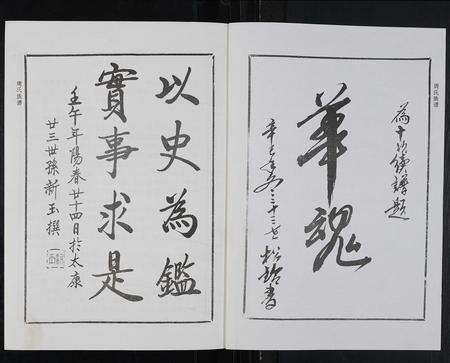 為十次續譜題
華魂
辛巳年冬三十三世松齡書
周氏族譜
以史為鑑
實事求是
壬午年陽春廿四日於太康
廿三世孫新玉撰
周氏族譜